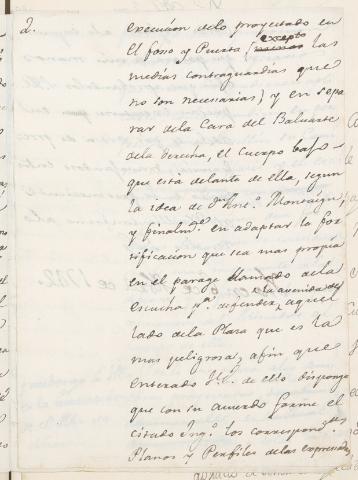 2.
execucion delo proyectado en
el foso y Puerta (excepto las
medias contraguardias que
no son necesarias) y en sepa
rar dela Cara del Baluarte
dela derecha, el Cuerpo bajo
que está delante de ella, segun
la idea de Dn. Ant.º Montaigu;
y finalm.te en adaptar la for
tificacion que sea mas propia
en el parage llamado dela
escucha p.a defender la avenida de aquel
lado dela Plaza que es la
mas peligrosa; afin que
enterado V.E. de ello disponga
que con su acuerdo forme el
citado Ing.º los correspond.tes
Planos y Perfiles delas expresadas